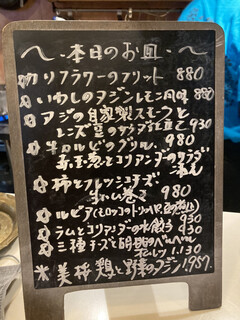 ～・本日のお皿・～
☆カリフラワーのフリット 880
☆いわしのタジン レモン風味 880
☆アジの自家製スモークと
レンズ豆のサラダ仕立て 930
☆牛カルビのグリル、
赤玉葱とコリアンダーのサラダ
添え
☆柿とフレッシュチーズ
生ハム巻き 980
☆ルビア(モロッコのトリッパ、豆の煮込) 930
☆ラムとコリアンダーの水餃子 930
☆三種チーズと
1,130
※美桜鶏と野菜のタジン 1,957